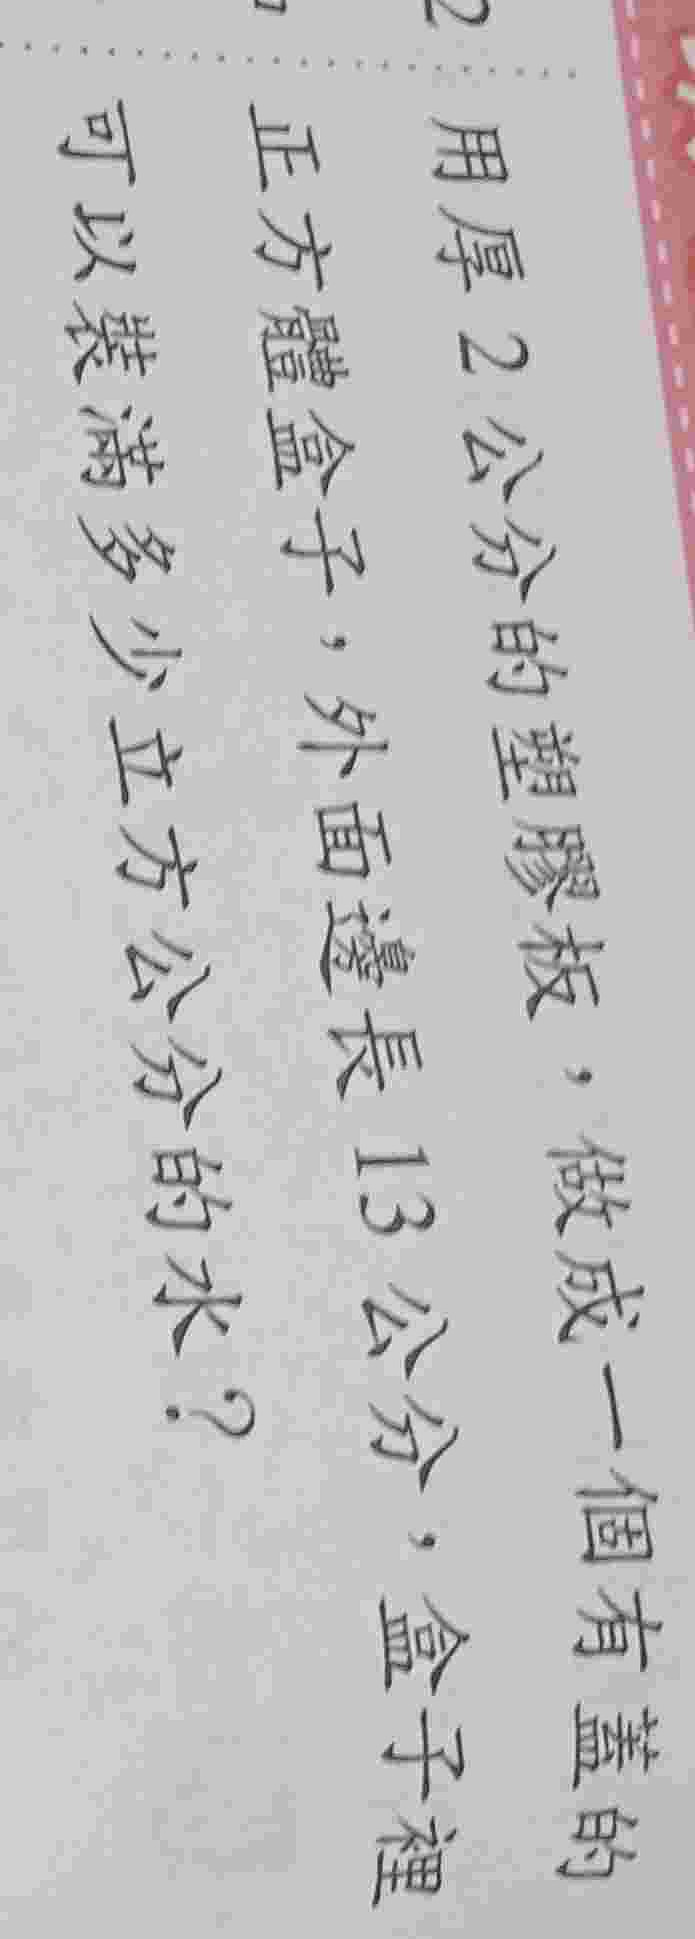 2
用厚2公分的塑膠板，做成一個有蓋的
正方體盒子，外面邊長13公分，盒子裡
可以裝滿多少立方公分的水？